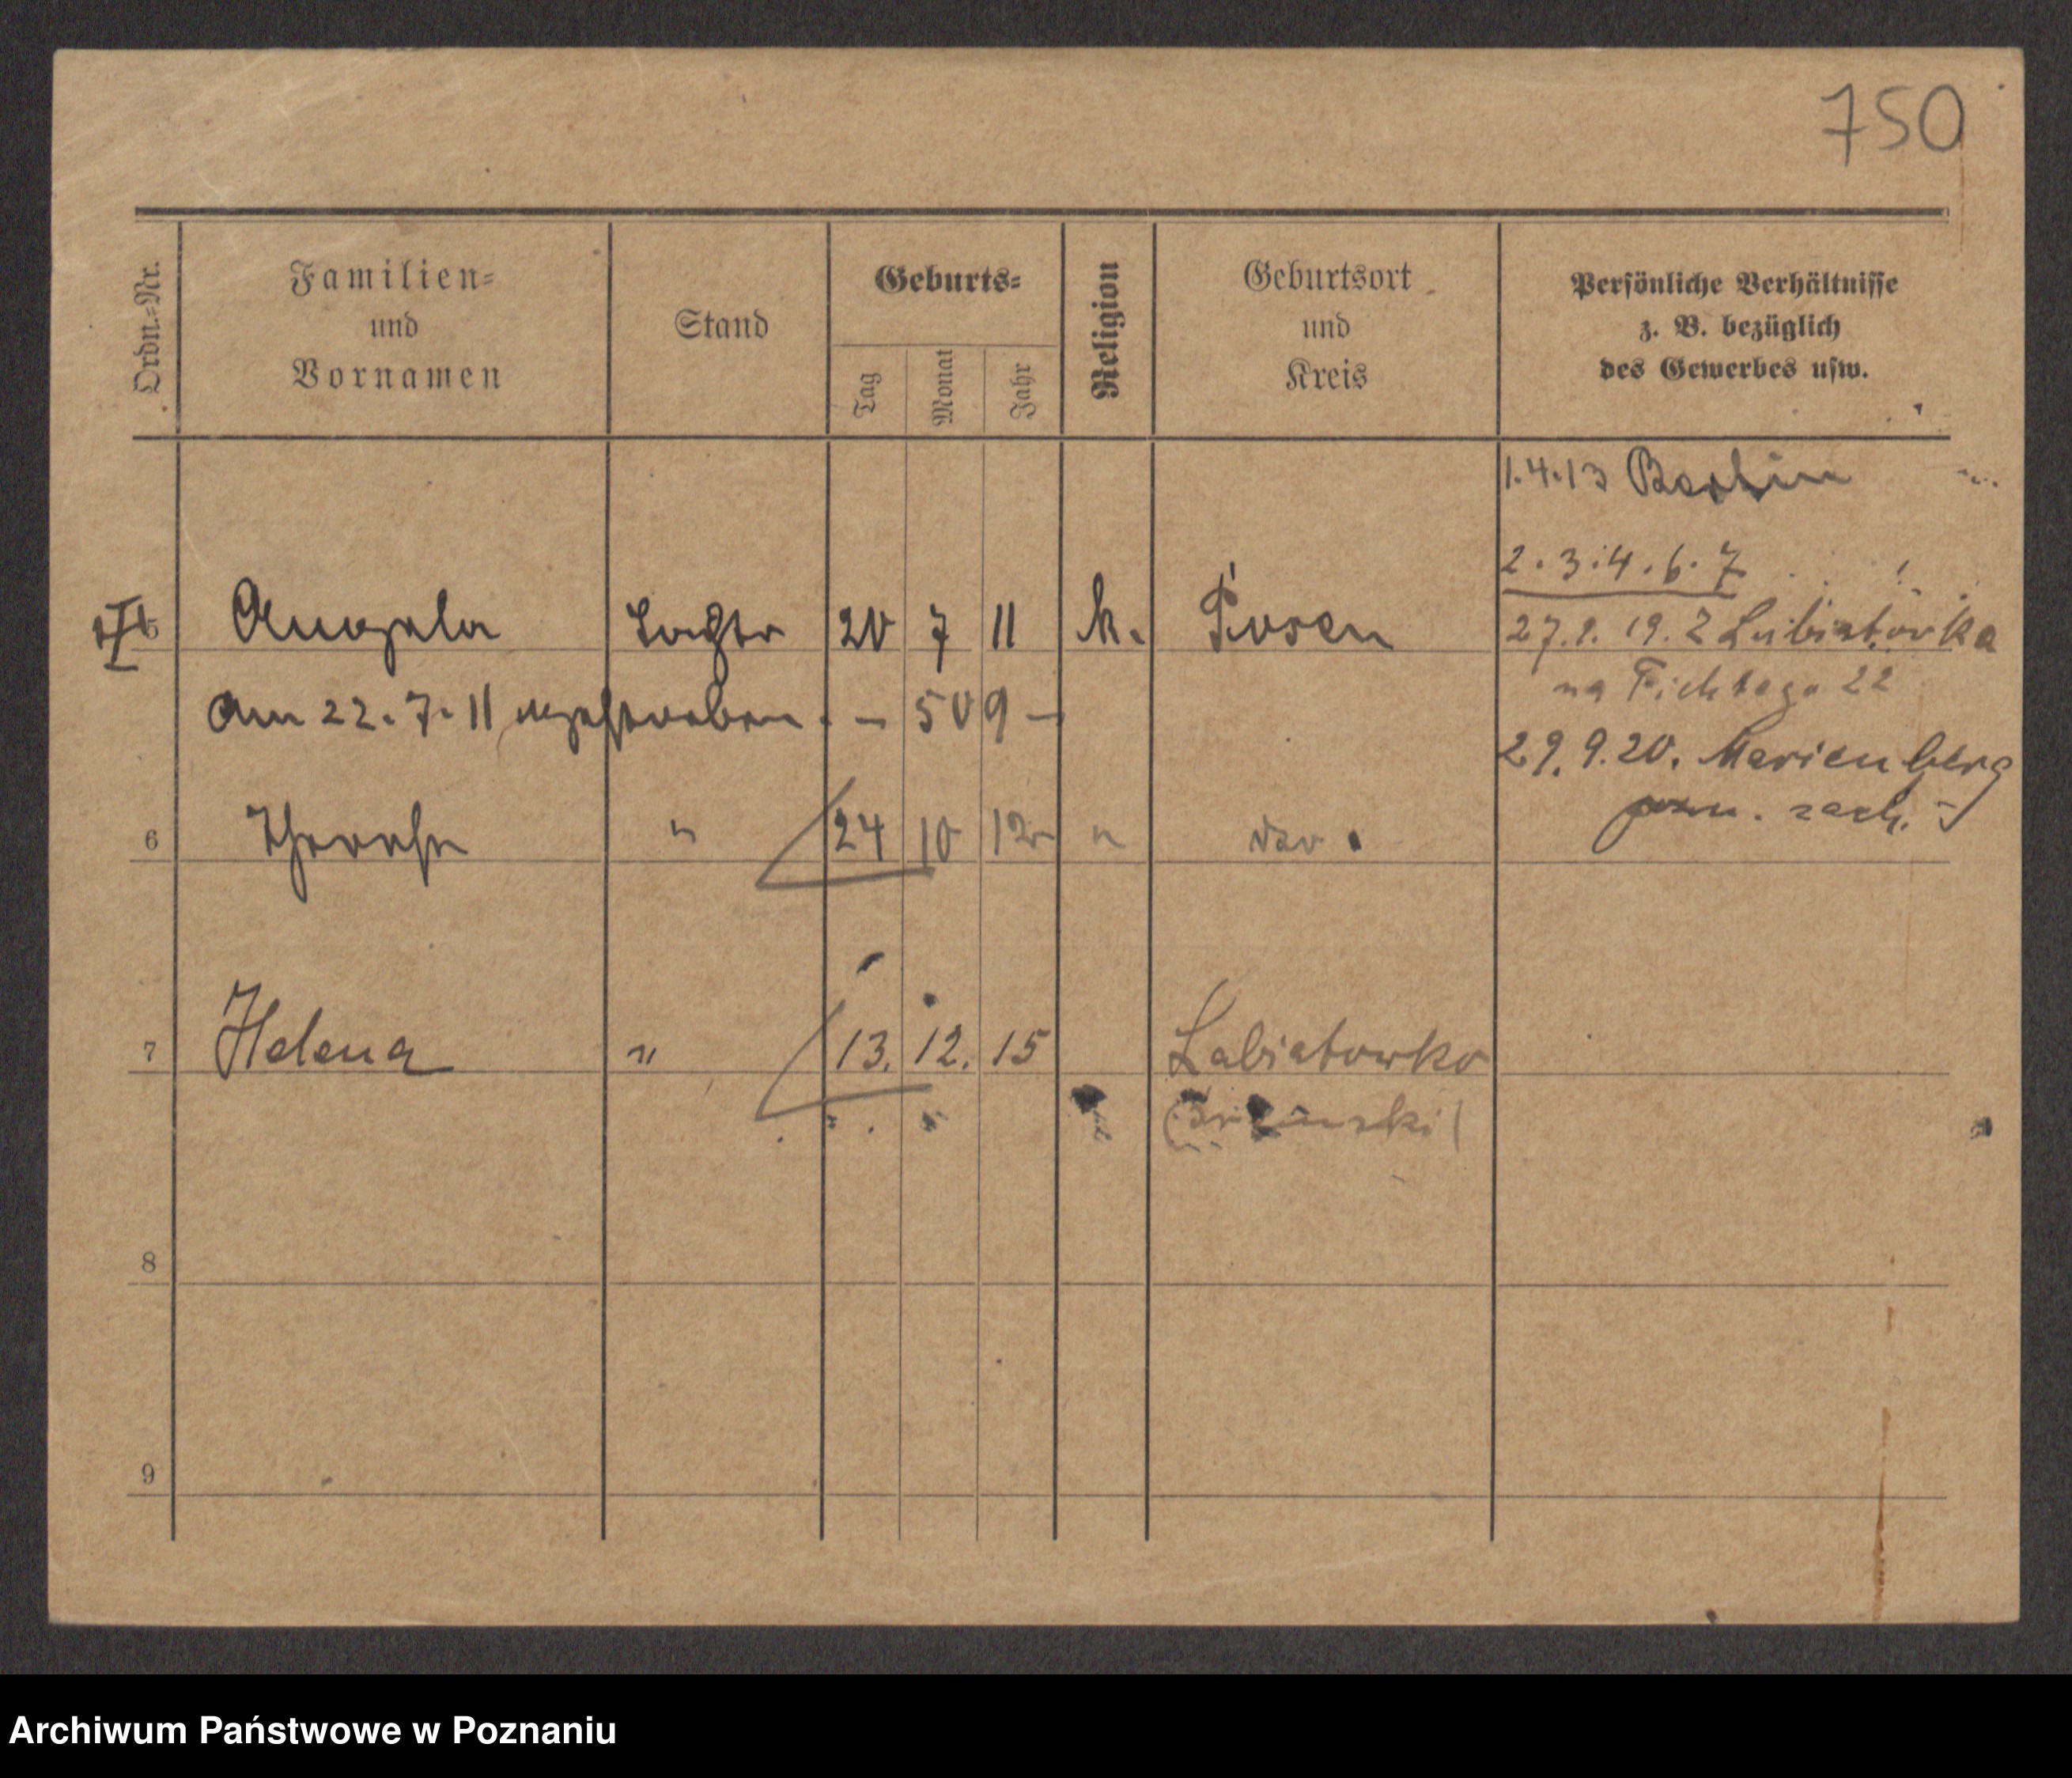 750
Ordn.-Nr. Familien- und Vornamen Stand Geburts- Tag Monat Jahr Religion Geburtsort und Kreis Persönliche Verhältnisse z. B. bezüglich des Gewerbes usw.
1.4.13 Berlin
2.3.4.6.7
5 Angela Tochter 20 7 11 k. Posen
27.1.19. Z Lubiatówka
na Fichtego 22
Am 22.7.11 verstorben. – 509 –
29.9.20. Marienberg
pozn. zach.
6 Therese " 24 10 12 " das.
7 Helena " 13. 12. 15 Lubiatowko
(Śremski)
8
9
Archiwum Państwowe w Poznaniu